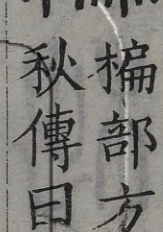 楄部方
秋傳曰